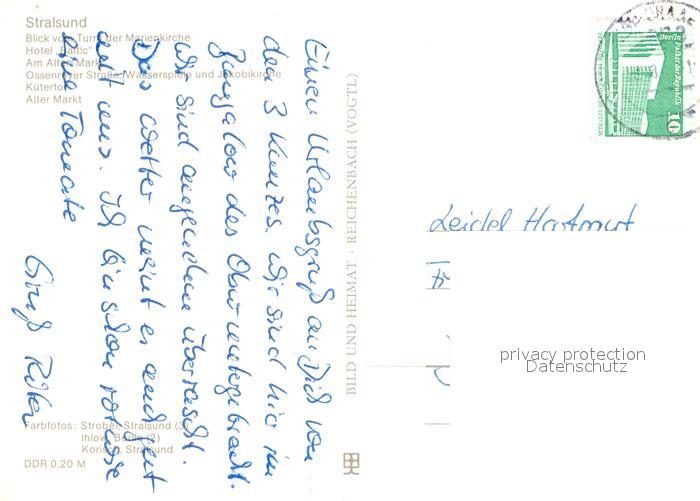 Stralsund
Blick vom Turm der Marienkirche
Hotel "Baltic"
Am Alten Markt
Ossenreyer Straße, Wasserspiele und Jakobikirche
Kütertor
Alter Markt
Einen Urlaubsgruß an Dich von
den 3 Wir sind hier im
Bungalow des untergebracht.
Wir sind angenehm überrascht.
Das Wetter meint es auch gut
mit uns. Ich bin schon rot wie
eine Tomate
Gruß
Farbfotos: Strobel, Stralsund (3)
Ihlow, Berlin (2)
Korisch, Stralsund
DDR 0,20 M
BILD UND HEIMAT · REICHENBACH (VOGTL)
Berlin
Palast der Republik
10
Leidel Hartmut
privacy protection
Datenschutz